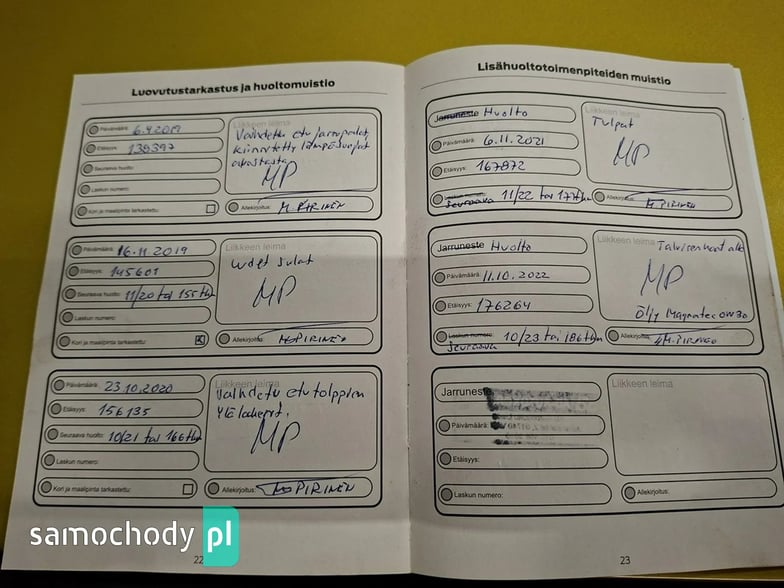 Luovutustarkastus ja huoltomuistio
Päivämäärä: 6.4.2019
Etäisyys: 139397
Seuraava huolto:
Laskun numero:
Kori ja maalipinta tarkastettu:
Liikkeen leima
Vaihdettu etu jarrupalat,
kiinnitetty lämpösuojat
MP
Allekirjoitus: M. PIRINEN
Päivämäärä: 16.11.2019
Etäisyys: 145601
Seuraava huolto: 11/20 tai 155 tkm
Laskun numero:
Kori ja maalipinta tarkastettu: X
Liikkeen leima
uudet sulat
MP
Allekirjoitus: M PIRINEN
Päivämäärä: 23.10.2020
Etäisyys: 156135
Seuraava huolto: 10/21 tai 166 tkm
Laskun numero:
Kori ja maalipinta tarkastettu:
Liikkeen leima
Vaihdettu etutolppien
MP
Allekirjoitus: PIRINEN
22
Lisähuoltotoimenpiteiden muistio
Jarruneste Huolto
Päivämäärä: 6.11.2021
Etäisyys: 167872
Laskun numero: 11/22 tai 177 tkm
Seuraava
Liikkeen leima
Tulpat
MP
Allekirjoitus: M PIRINEN
Jarruneste Huolto
Päivämäärä: 11.10.2022
Etäisyys: 176264
Laskun numero: 10/23 tai 186 tkm
Seuraava
Liikkeen leima
Talvirenkaat alle
MP
Öljy Magnatec 0W30
Allekirjoitus: M. PIRINEN
Jarruneste
Päivämäärä:
Etäisyys:
Laskun numero:
Liikkeen leima
Allekirjoitus:
23
samochody pl